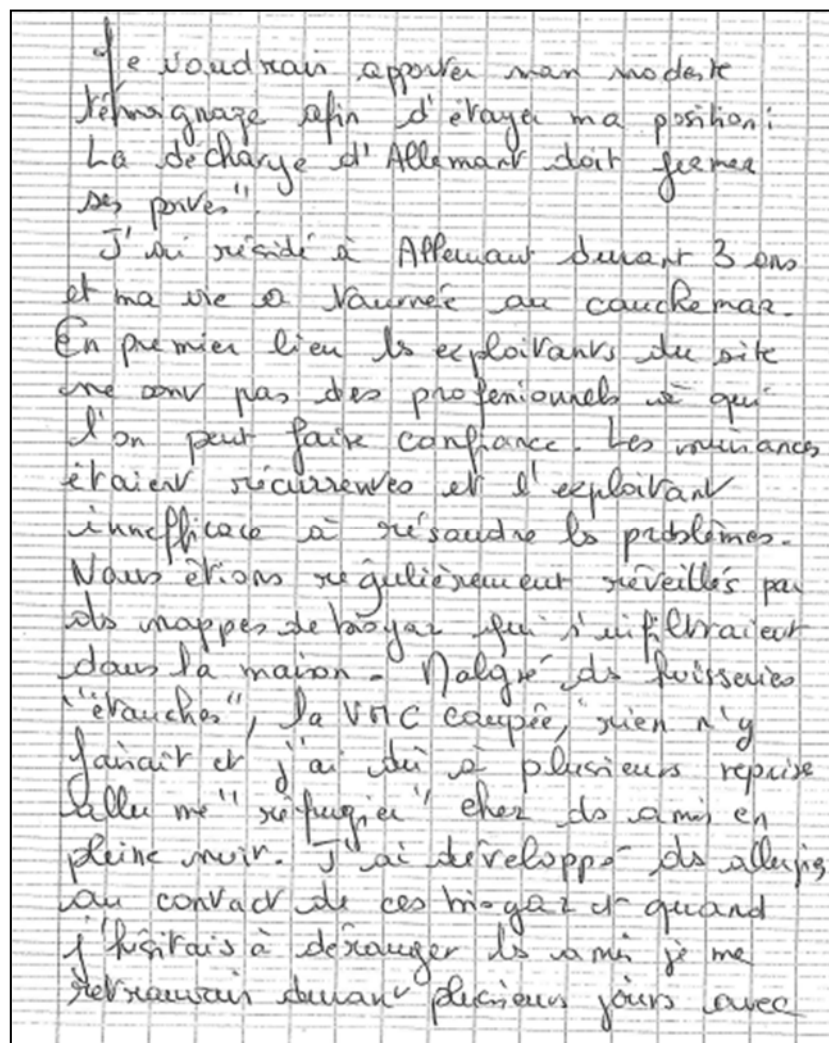 Je voudrais apporter mon modeste
témoignage afin d'étayer ma position :
La décharge d'Allemant doit fermer
ses portes".
J'ai résidé à Allemant durant 3 ans
et ma vie a tournée au cauchemar.
En premier lieu les exploitants du site
ne sont pas des professionnels à qui
l'on peut faire confiance. Les nuisances
étaient récurrentes et l'exploitant
innefficace à résoudre les problèmes.
Nous étions régulièrement réveillés par
des nappes de biogaz qui s'infiltraient
dans la maison. Malgré des huisseries
"étanches", la VMC coupée, rien n'y
faisait et j'ai dû à plusieurs reprise
aller me "réfugier" chez des amis en
pleine nuit. J'ai développé des allergies
au contact de ces biogaz et quand
j'hésitais à déranger les amis je me
retrouvais durant plusieurs jours avec